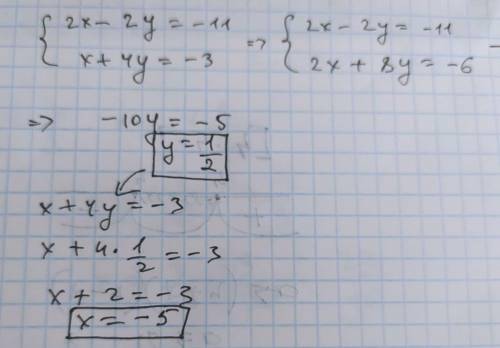 { 2x - 2y = -11 => { 2x - 2y = -11
x + 4y = -3 2x + 8y = -6 -
=> -10y = -5
y = 1/2
x + 4y = -3
x + 4 · 1/2 = -3
x + 2 = -3
x = -5